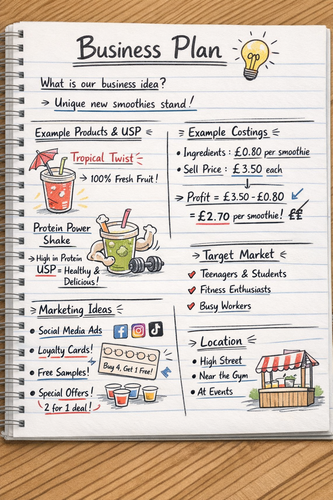 Business Plan
What is our business idea?
→ Unique new smoothies stand!
Example Products & USP
Tropical Twist
→ 100% Fresh Fruit!
Protein Power
Shake
→ High in Protein
USP = Healthy &
Delicious!
Example Costings
• Ingredients: £0.80 per smoothie
• Sell Price: £3.50 each
→ Profit = £3.50 - £0.80
= £2.70 per smoothie! ££
Target Market
✔ Teenagers & Students
✔ Fitness Enthusiasts
✔ Busy Workers
Marketing Ideas
• Social Media Ads
• Loyalty Cards!
Buy 4, Get 1 Free!
• Free Samples!
• Special Offers!
2 for 1 deal!
Location
• High Street
• Near the Gym
• At Events